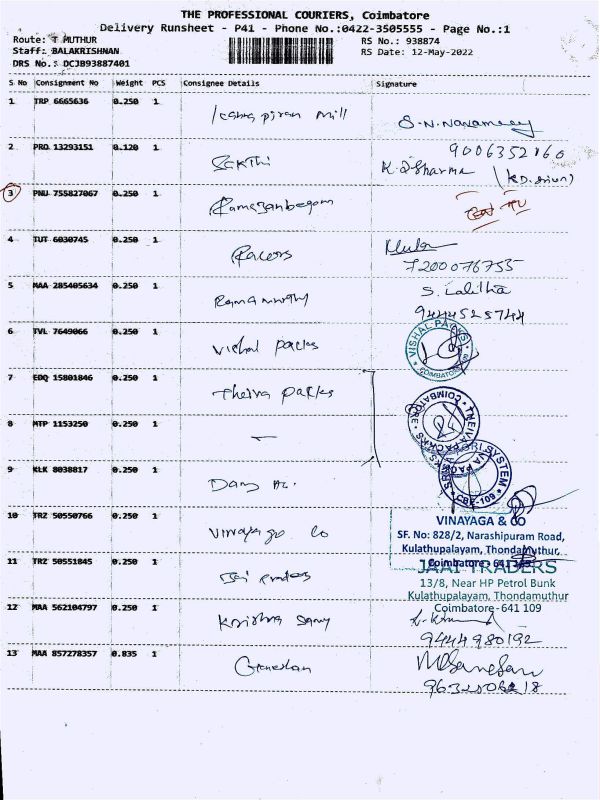 THE PROFESSIONAL COURIERS, Coimbatore
Delivery Runsheet - P41 - Phone No.:0422-3505555 - Page No.:1
Route: T MUTHUR
RS No.: 938874
Staff: BALAKRISHNAN
RS Date: 12-May-2022
DRS No.: DCJB93887401
S No Consignment No Weight PCS Consignee Details Signature
1 TRP 6665636 0.250 1 mill
2 PRO 13293151 0.120 1 Sakthi K.D Sharma
9006352160
3 PNU 755827067 0.250 1 Ramazanbegam
4 TUT 6030745 0.250 1 Racers
7200076755
5 MAA 285405634 0.250 1 Ramamurthy S. Lalitha
9444525744
6 TVL 7649066 0.250 1 Vishal packs
VISHAL PACKS
COIMBATORE
7 EDQ 15801846 0.250 1 Theiva packs
THEIVA PACKS COIMBATORE
8 MTP 1153250 0.250 1 —
9 KLK 8038817 0.250 1
SYSTEM
CBE-109
10 TRZ 50550766 0.250 1 Vinayaga Co
VINAYAGA & CO
SF. No: 828/2, Narashipuram Road,
Kulathupalayam, Thondamuthur,
Coimbatore - 641
11 TRZ 50551845 0.250 1 Jai traders
JAAI TRADERS
13/8, Near HP Petrol Bunk
Kulathupalayam, Thondamuthur
Coimbatore-641 109
12 MAA 562104797 0.250 1 Krishna Samy
9444980192
13 MAA 857278357 0.835 1 Ganeshan